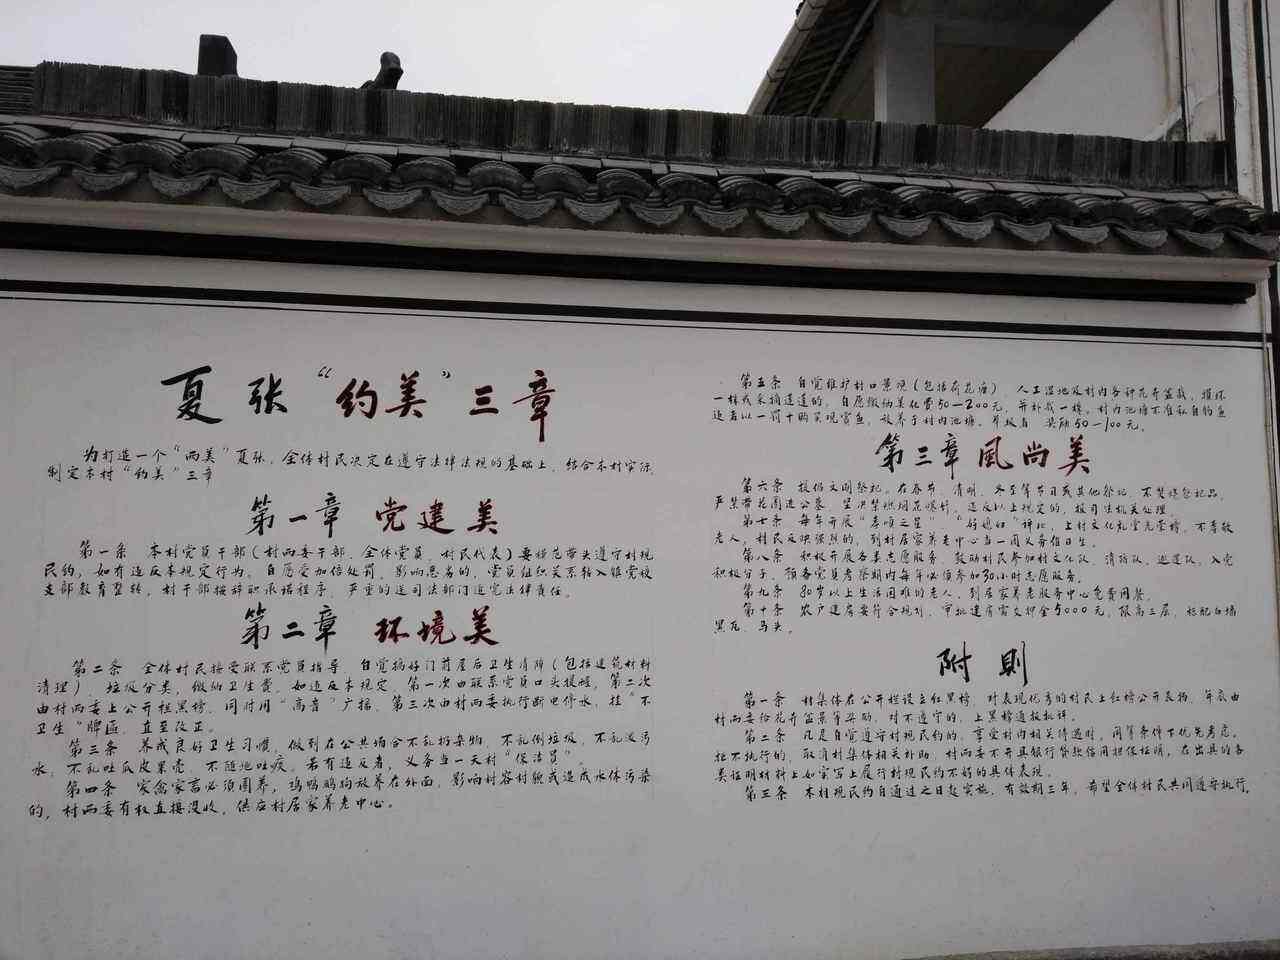 夏张“约美”三章
为打造一个“两美”夏张，全体村民决定在遵守法律法规的基础上，结合本村实际
制定本村“约美”三章
第一章 党建美
第一条 本村党员干部（村两委干部、全体党员、村民代表）要模范带头遵守村规
民约，如有违反本规定行为，自愿受加倍处罚。影响恶劣的，党员组织关系转入镇党校
支部教育整转，村干部按辞职承诺程序，严重的送司法部门追究法律责任。
第二章 环境美
第二条 全体村民接受联系党员指导，自觉搞好门前屋后卫生清障（包括建筑材料
清理），垃圾分类，缴纳卫生费。如违反本规定，第一次由联系党员口头提醒，第二次
由村两委上公开栏黑榜，同时用“高音”广播，第三次由村两委执行断电停水，挂“不
卫生”牌匾，直至改正。
第三条 养成良好卫生习惯，做到在公共场合不乱扔杂物，不乱倒垃圾，不乱泼污
水，不乱吐瓜皮果壳，不随地吐痰。若有违反者，义务当一天村“保洁员”。
第四条 家禽家畜必须圈养，鸡鸭鹅狗放养在外面，影响村容村貌或造成水体污染
的，村两委有权直接没收，供应村居家养老中心。
第五条 自觉维护村口景观（包括荷花塘） 人工湿地及村内各种花卉盆栽，损坏
一株或采摘莲蓬的，自愿缴纳美化费50—200元，并补栽一株。村内池塘不准私自钓鱼
违者以一罚十购买观赏鱼，放养于村内池塘。举报有 奖励50—100元。
第三章 風尚美
第六条 提倡文明祭祀。在春节、清明、冬至等节日或其他祭祀，不焚烧祭祀品，
严禁带花圈进公墓，坚决禁燃烟花爆竹，违反以上规定的，报司法机关处理。
第七条 每年开展“孝顺之星”、“好媳妇”评比，上村文化礼堂光荣榜，不孝敬
老人，村民反映强烈的，到村居家养老中心当一周义务值日生。
第八条 积极开展各类志愿服务，鼓励村民参加村文化队、消防队、巡逻队，入党
积极分子、预备党员考察期内每年必须参加30小时志愿服务。
第九条 80岁以上生活困难的老人，到居家养老服务中心免费用餐。
第十条 农户建房要符合规划，审批建房需交押金5000元，限高三层，搭配白墙
黑瓦、马头。
附則
第一条 村集体在公开栏设立红黑榜，对表现优秀的村民上红榜公开表扬，年底由
村两委给花卉盆景等奖励，对不遵守的，上黑榜通报批评。
第二条 凡是自觉遵守村规民约的，享受村内相关待遇时，同等条件下优先考虑。
拒不执行的，取消村集体相关补助，村两委不开具银行贷款信用担保证明，在出具的各
类证明材料上如实写上履行村规民约不好的具体表现。
第三条 本村规民约自通过之日起实施，有效期三年，希望全体村民共同遵守执行。